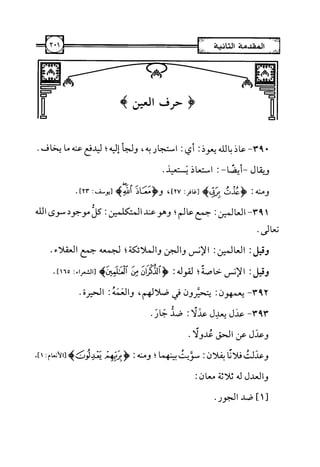 المقدمة الثانية
٢٠١
﴿ حرف العين ﴾
٣٩٠- عاذ بالله يعوذ: أي: استجار به، ولجأ إليه؛ ليدفع عنه ما يخاف.
ويقال -أيضًا-: استعاذ يَستعيذ.
ومنه: ﴿عُذْتُ بِرَبِّي﴾ [غافر: ٢٧]، و﴿مَعَاذَ اللَّهِ﴾ [يوسف: ٢٣].
٣٩١- العالمين: جمع عالم؛ وهو عند المتكلمين: كلُّ موجود سوى الله
تعالى.
وقيل: العالمين: الإنس والجن والملائكة؛ لجمعه جمع العقلاء.
وقيل: الإنس خاصة؛ لقوله: ﴿الذُّكْرَانَ مِنَ الْعَالَمِينَ﴾ [الشعراء: ١٦٥].
٣٩٢- يعمهون: يتحيَّرون في ضلالهم، والعَمَهُ: الحيرة.
٣٩٣- عدَل يعدِل عدْلًا: ضدُّ جَارَ.
وعدَل عن الحق عُدولًا.
وعدَلتُ فلانًا بفلان: سوَّيتُ بينهما؛ ومنه: ﴿بِرَبِّهِمْ يَعْدِلُونَ﴾ [الأنعام: ١].
والعدل له ثلاثة معان:
[١] ضد الجور.